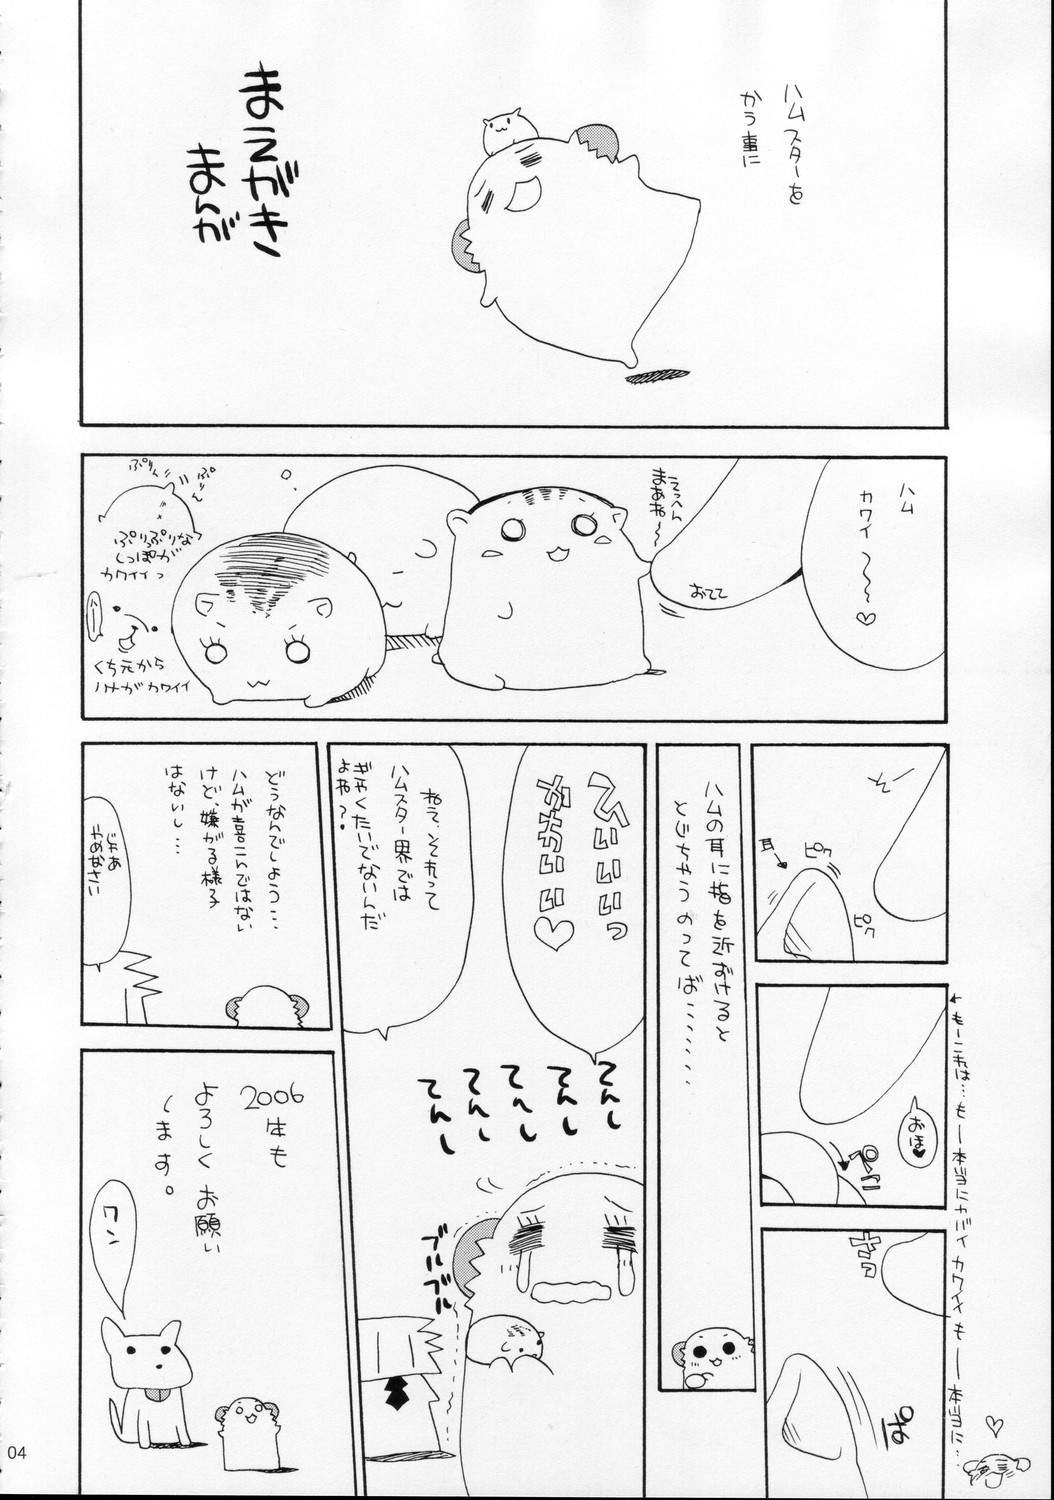 ハムスターを
かう事に
まえがき
まんが
ハム
カワイ〜〜♡
てっへん
まあね〜
おてて
ぷりん
ぷりん
ぷりっぷりな
しっぽが
カワイイっ
くち元から
ハナがカワイイ
耳
ピク
ピク
おほ♥
ペこ
←もーこれは…もー本当にヤバイカワイイもー本当に…
♡
ハムの耳に指を近ずけると
とじちゃうのってば………
へぃぃぃっ
ねえ、それって
ハムスター界では
ぎゃくたいでないんだ
よね?
てんし
てんし
てんし
てんし
てんし
ブルブル
ブルブル
どうなんでしょう…
ハムが喜こんではない
けど、嫌がる様子
はないし…
じゃあ
やめなさい
2006
年も
よろしくお願い
します。
ワン
04